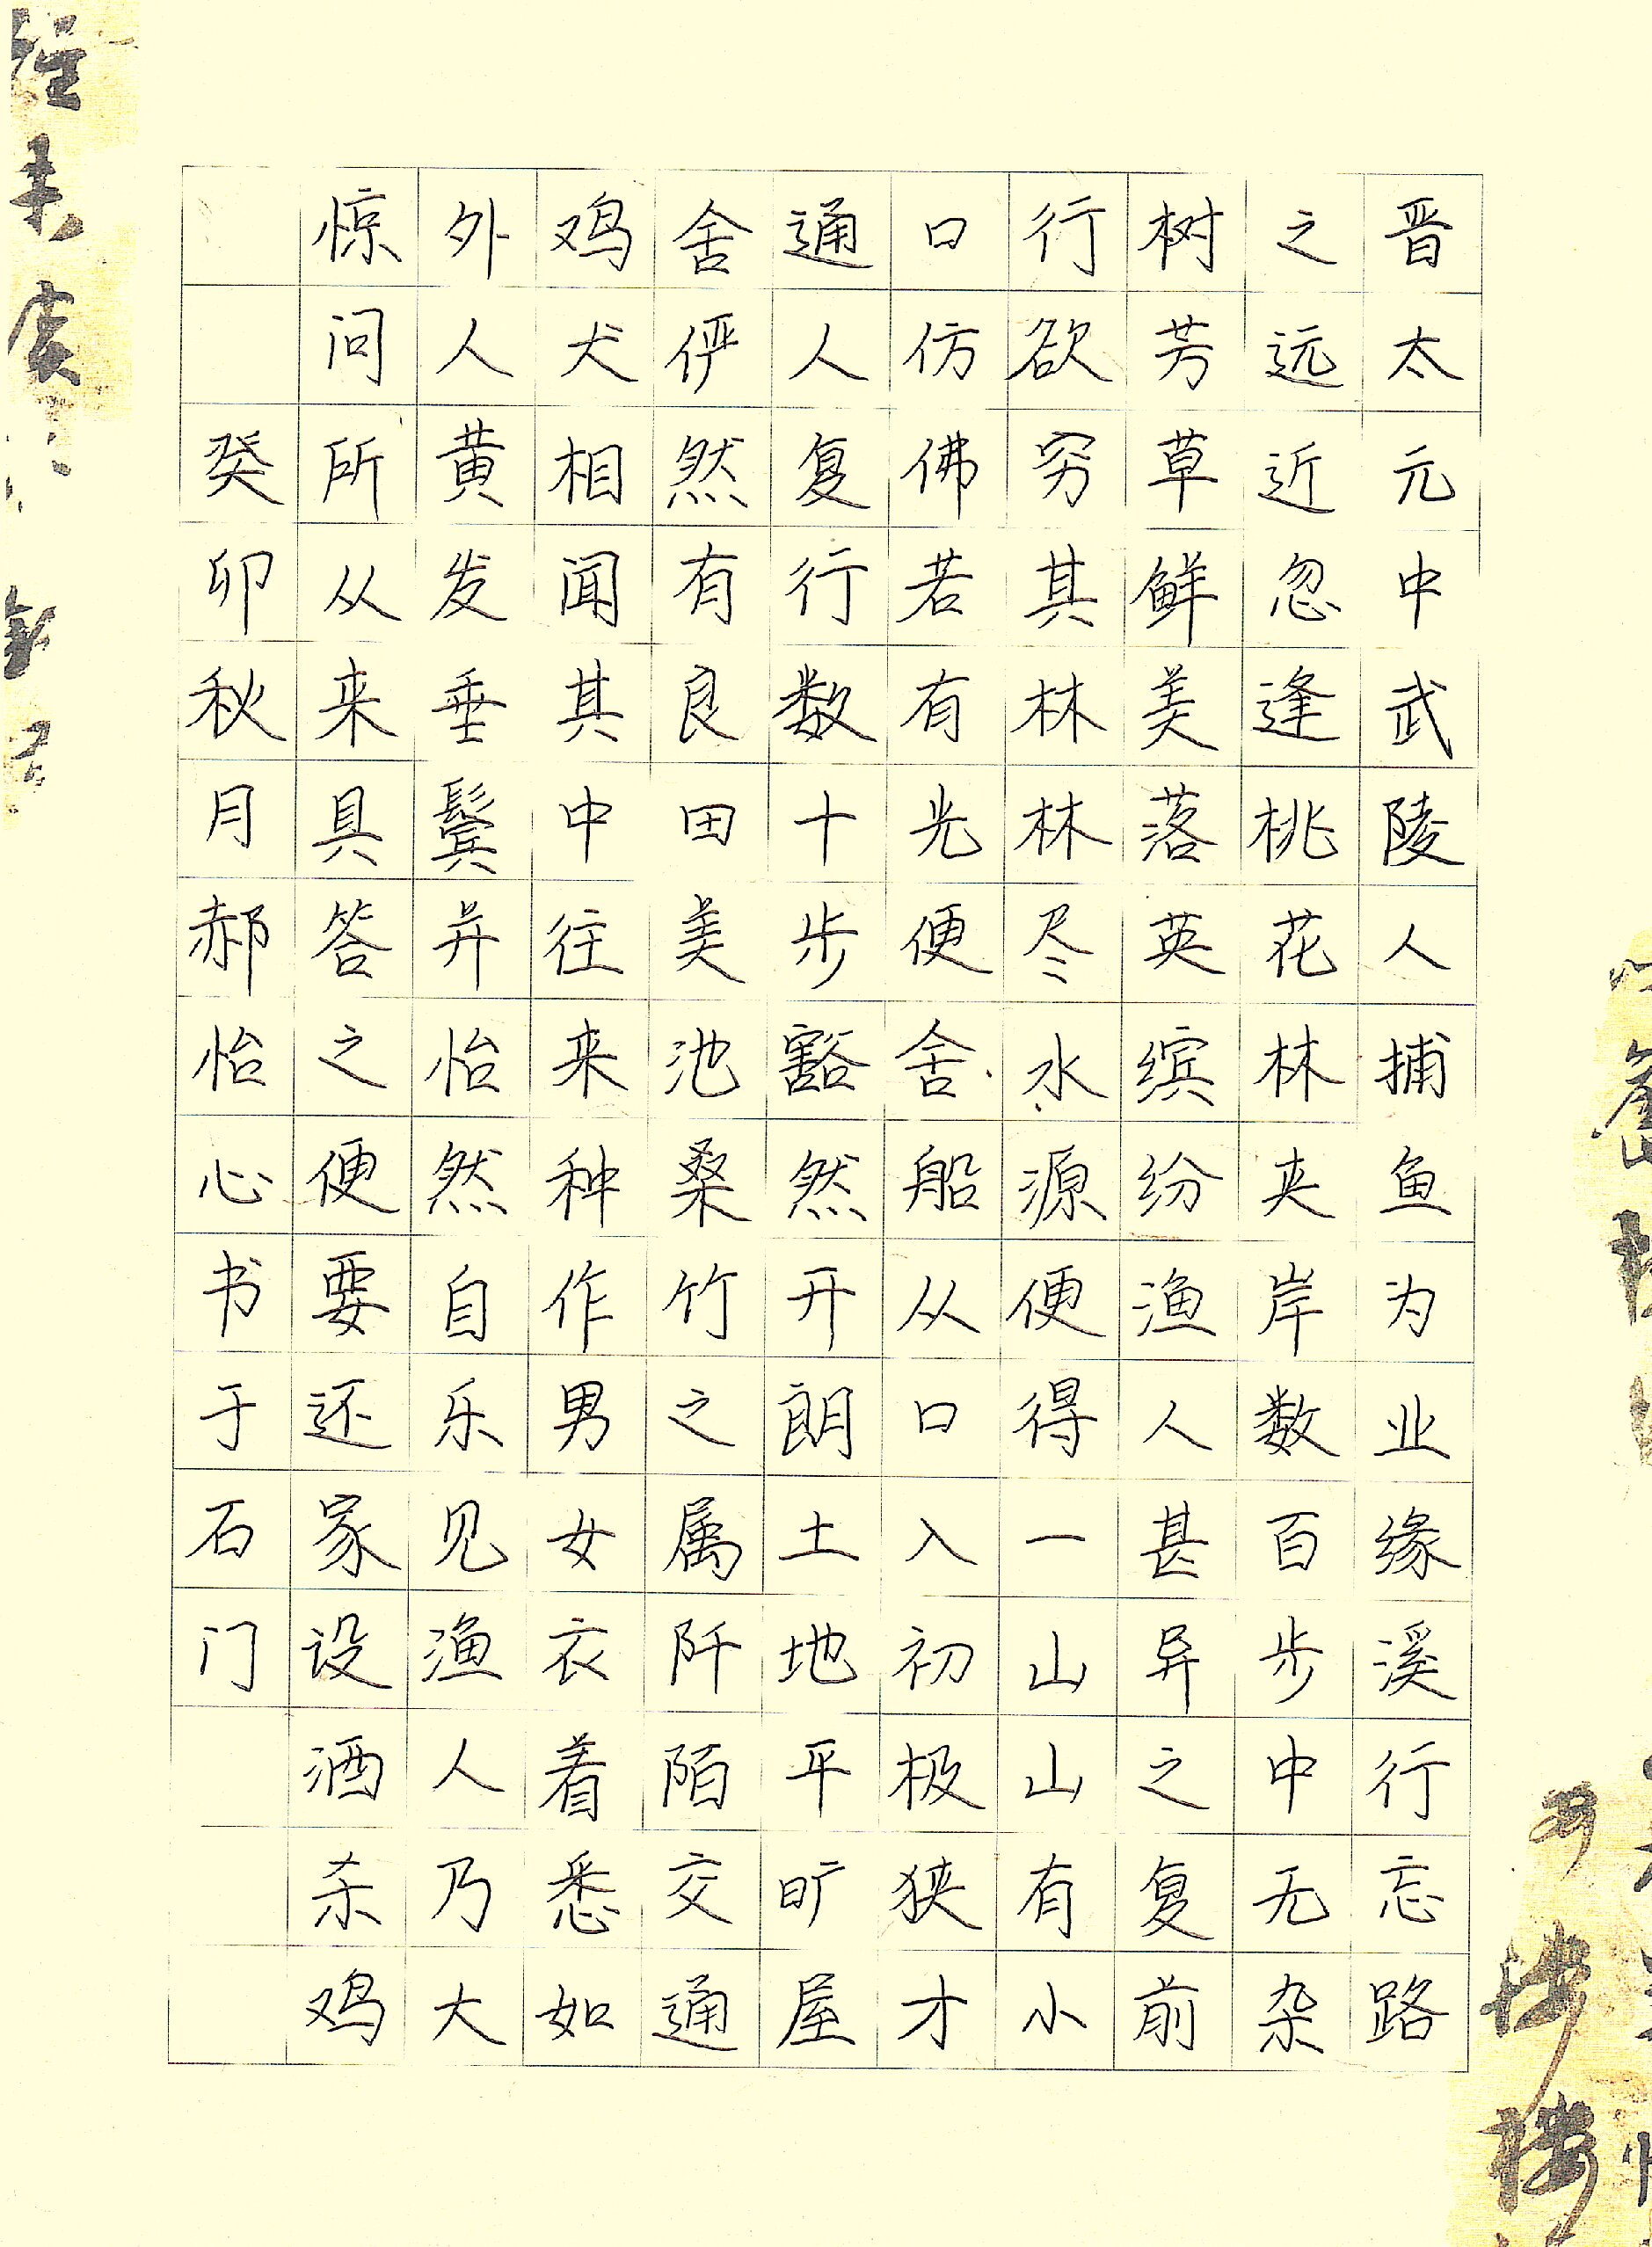 晋太元中武陵人捕鱼为业缘溪行忘路
之远近忽逢桃花林夹岸数百步中无杂
树芳草鲜美落英缤纷渔人甚异之复前
行欲穷其林林尽水源便得一山山有小
口仿佛若有光便舍船从口入初极狭才
通人复行数十步豁然开朗土地平旷屋
舍俨然有良田美池桑竹之属阡陌交通
鸡犬相闻其中往来种作男女衣着悉如
外人黄发垂鬓并怡然自乐见渔人乃大
惊问所从来具答之便要还家设酒杀鸡
癸卯秋月郝怡心书于石门